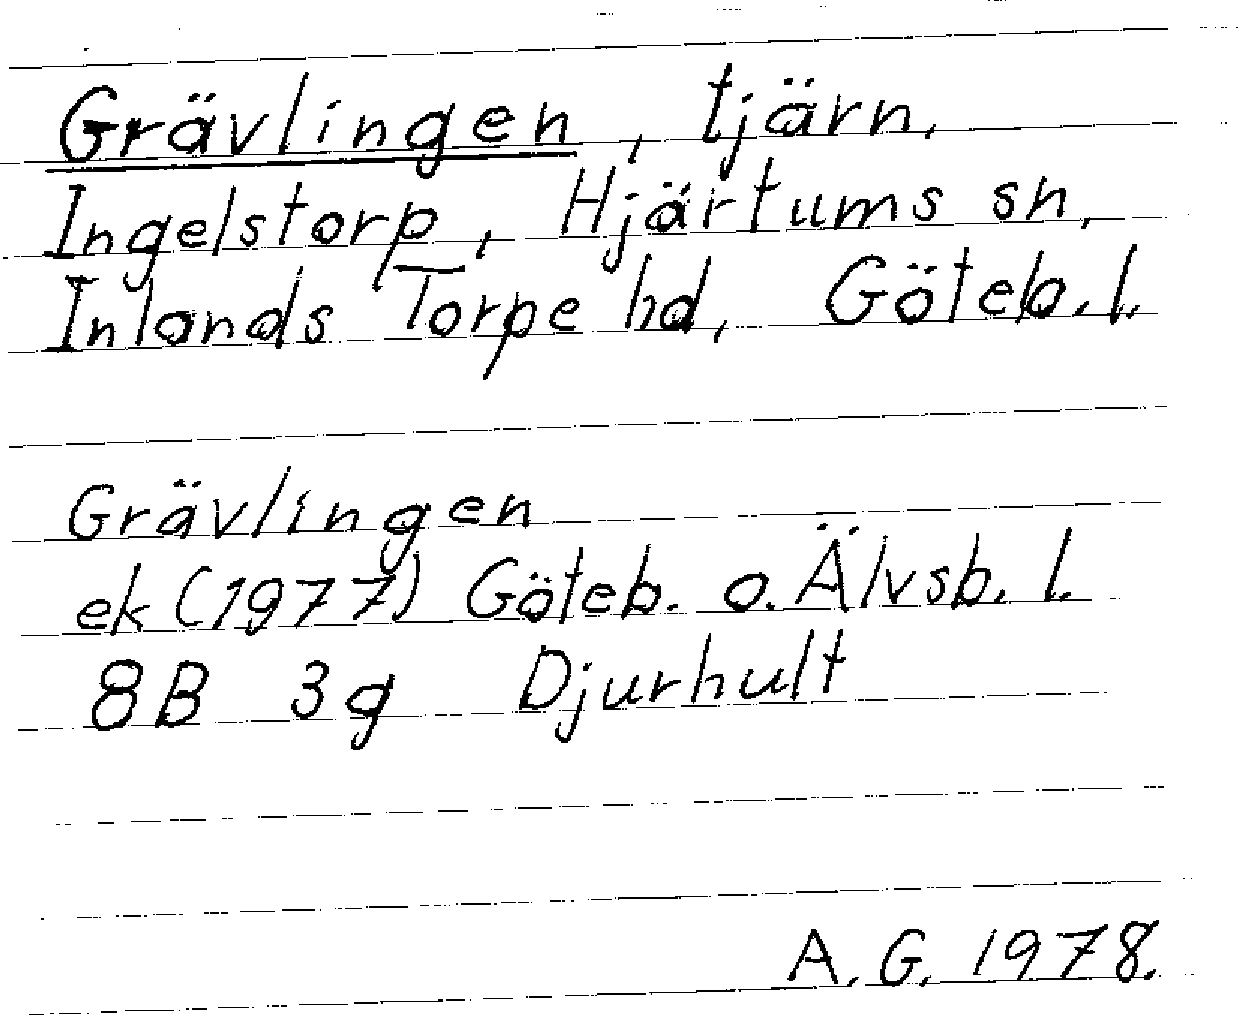 Grävlingen, tjärn,
Ingelstorp, Hjärtums sn,
Inlands Torpe hd, Göteb. l.
Grävlingen
ek (1977) Göteb. o. Älvsb. l.
8B 3g Djurhult
A. G. 1978.